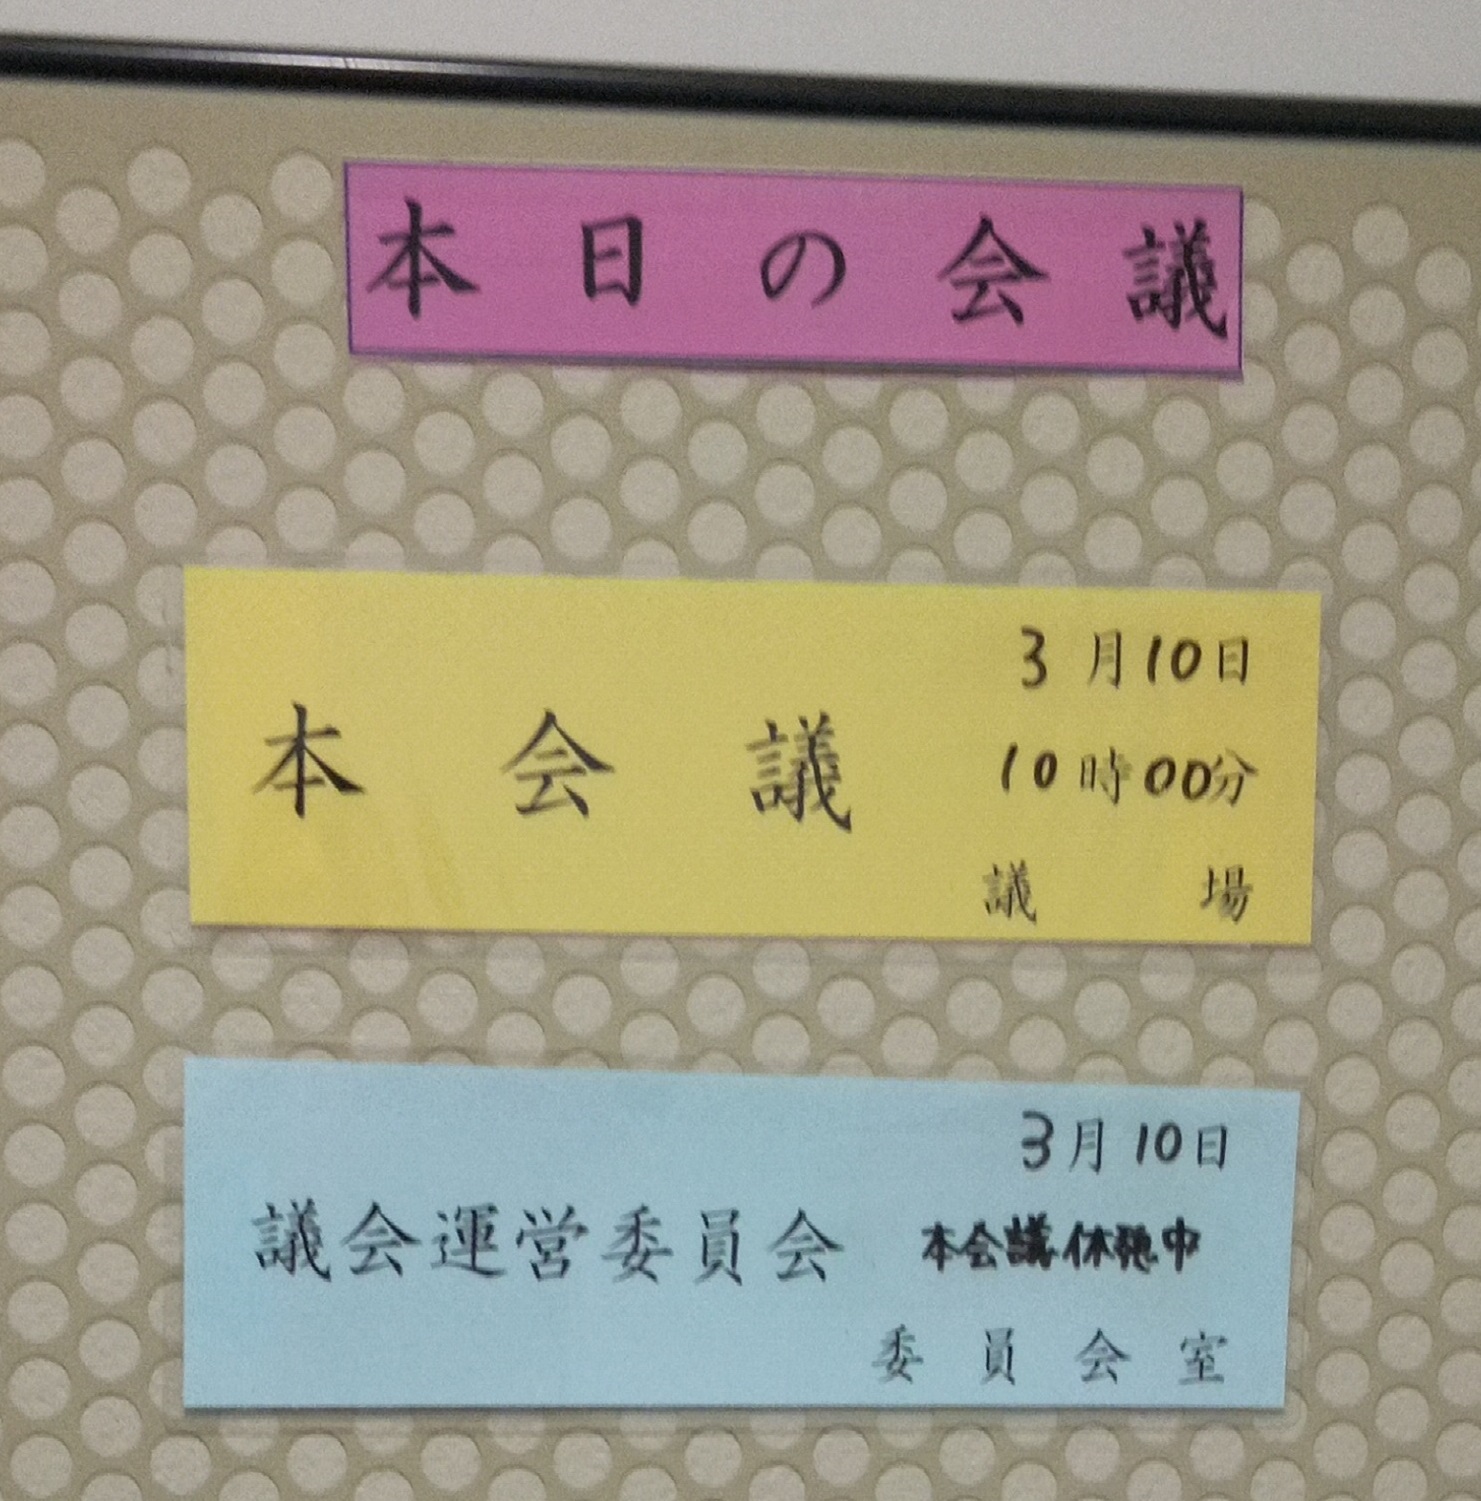 本日の会議
本会議
3月10日
10時00分
議場
議会運営委員会
3月10日
本会議休憩中
委員会室